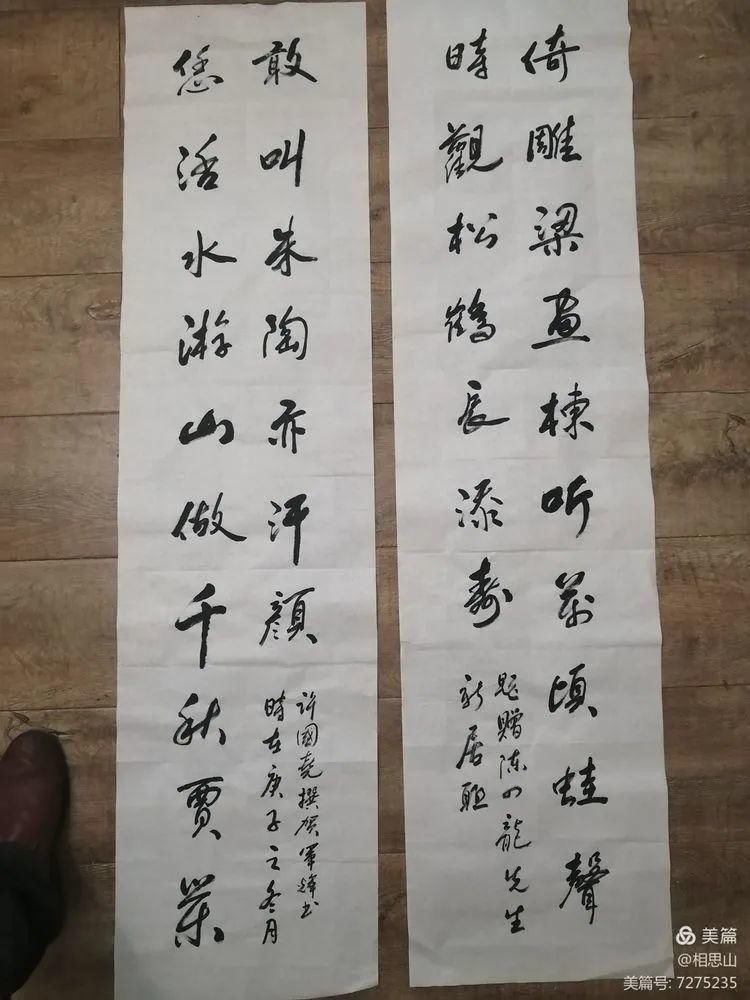 倚雕梁畫棟听萬頃蛙聲
時觀松鶴長添壽
題贈陈龍先生
新居联
恁活水游山做千秋賈業
敢叫朱陶亦汗顔
許國堯撰贺軍輝书
時在庚子之冬月
美篇
@相思山
美篇号: 7275235